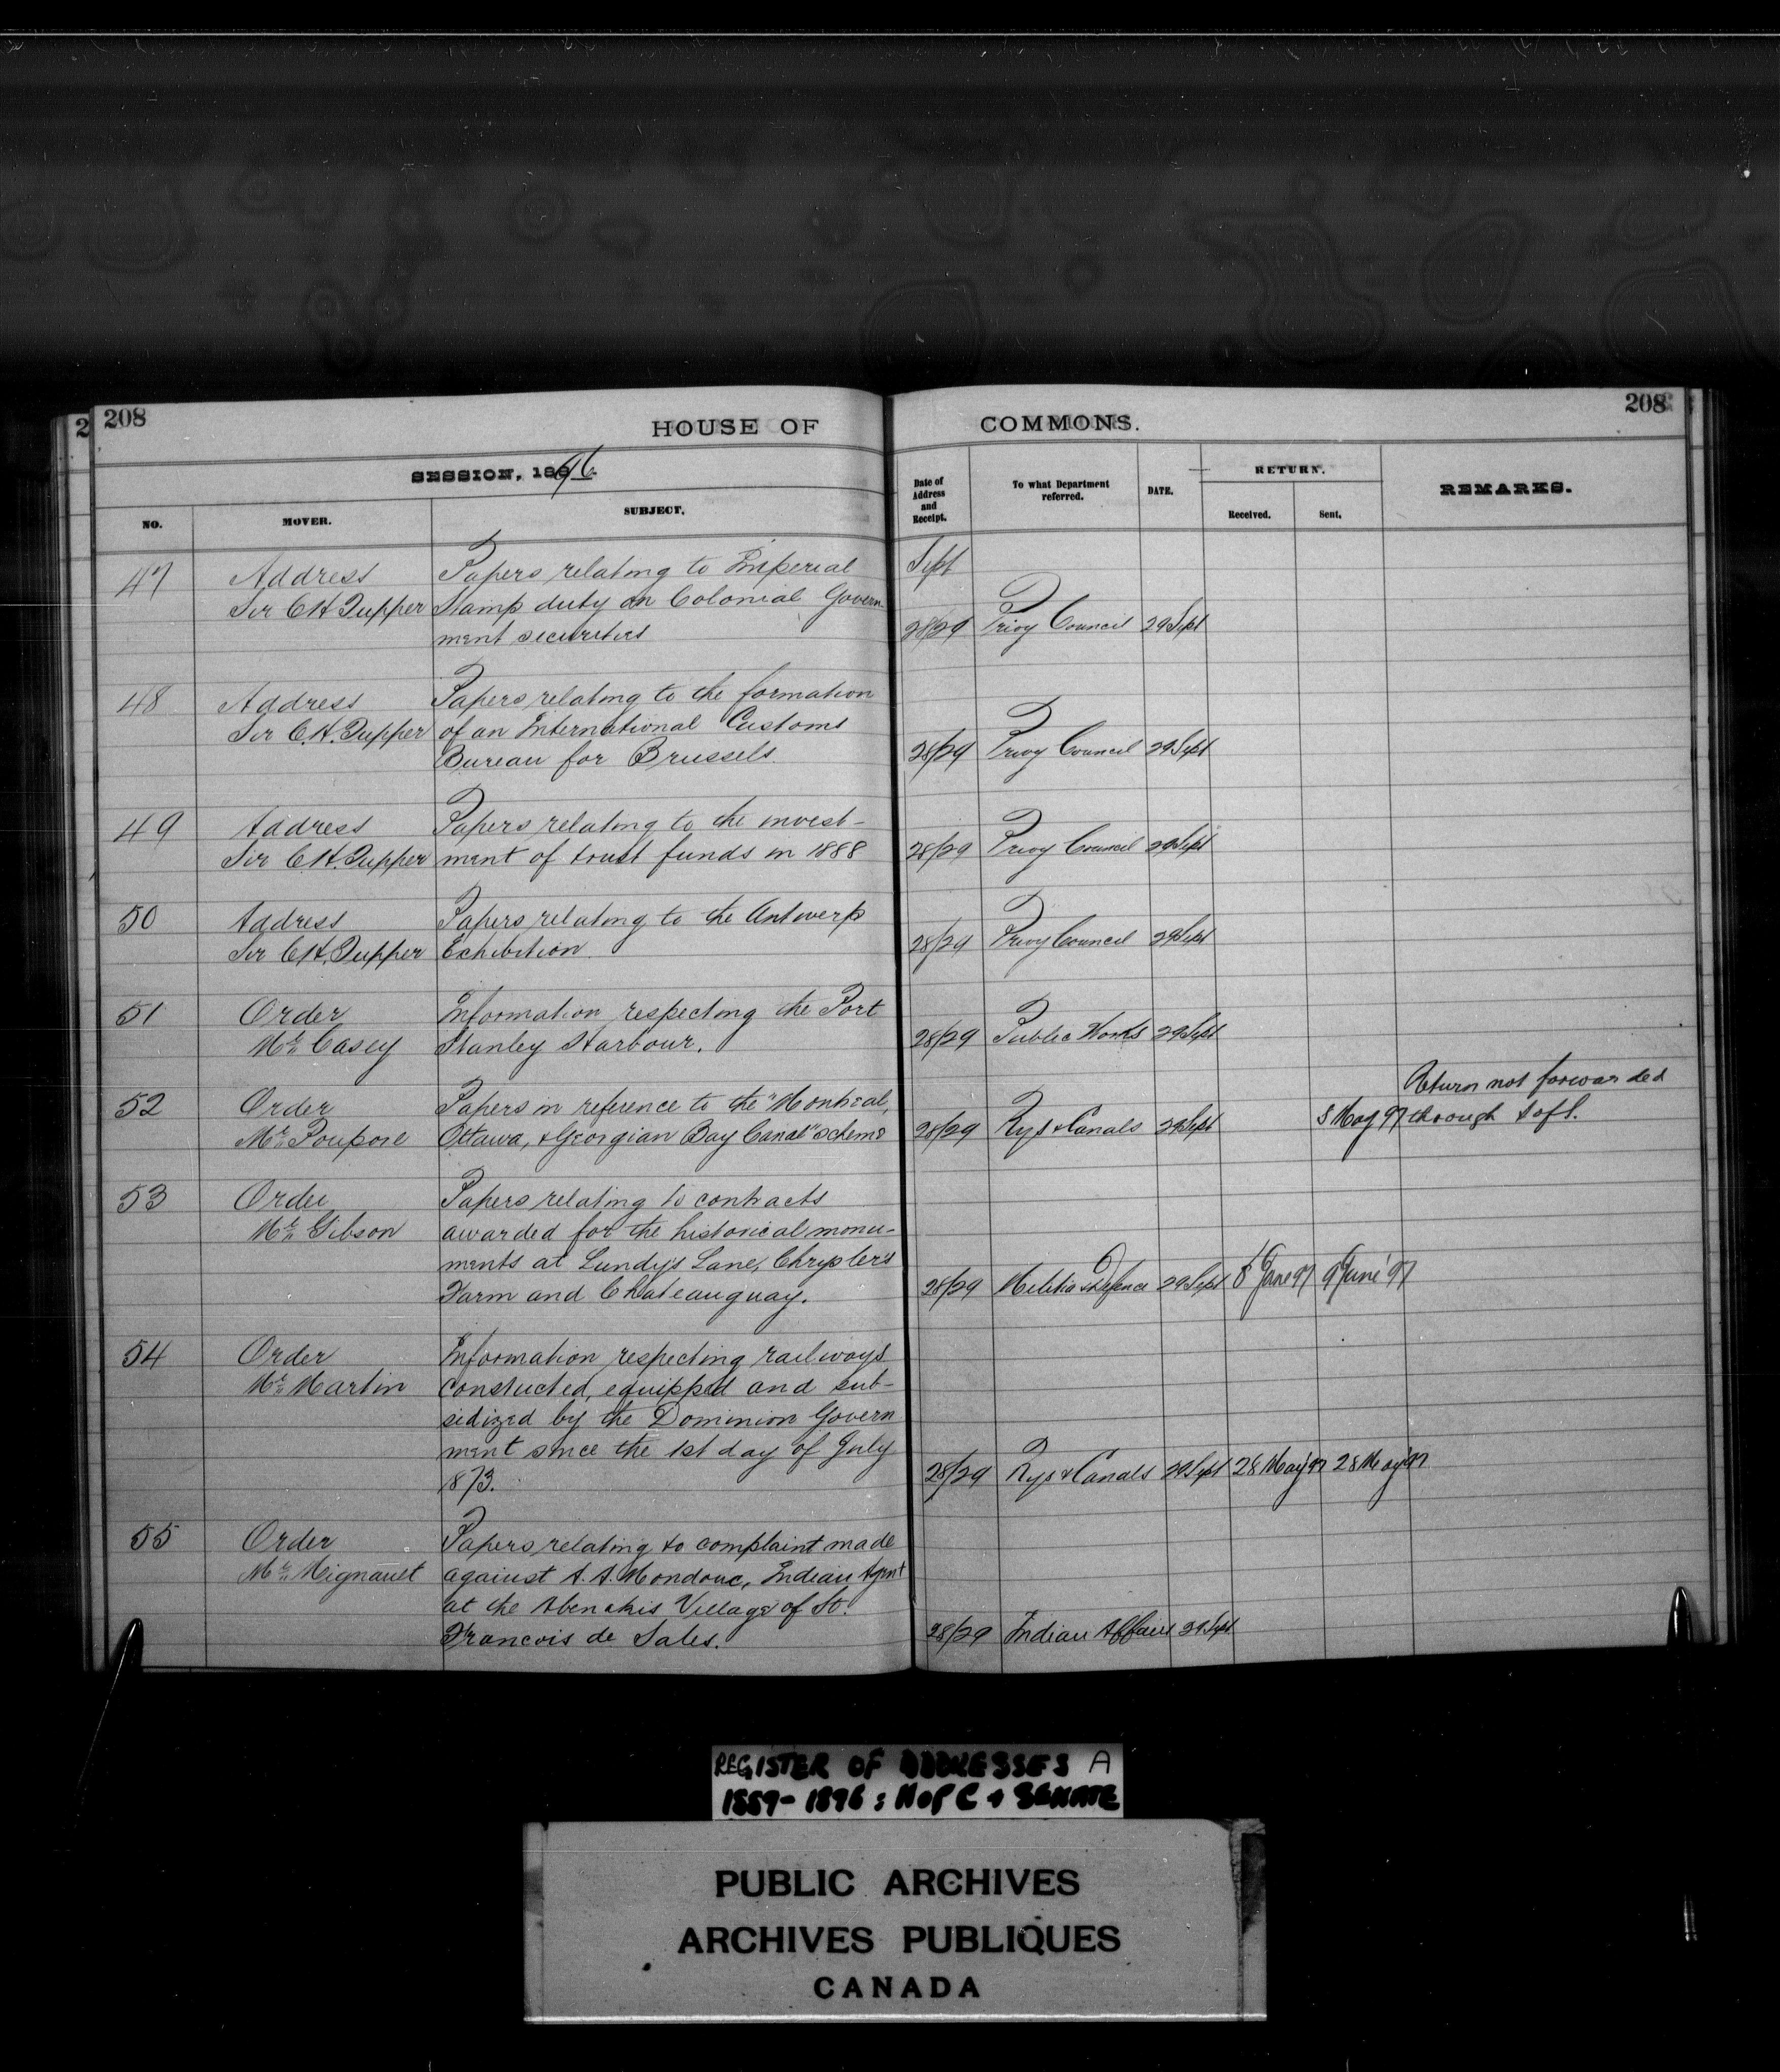 2 208
HOUSE OF COMMONS.
208
SESSION, 1896.
NO. MOVER. SUBJECT. Date of Address and Receipt. To what Department referred. DATE. RETURN. Received. Sent. REMARKS.
47 Address Papers relating to Imperial Sept
Sir C H Tupper Stamp duty on Colonial Govern-
ment securities 28/29 Privy Council 29 Sept
48 Address Papers relating to the formation
Sir C. H. Tupper of an International Customs
Bureau for Brussels. 28/29 Privy Council 29 Sept
49 Address Papers relating to the invest-
Sir C. H. Tupper ment of trust funds in 1888 28/29 Privy Council 29 Sept
50 Address Papers relating to the Antwerp
Sir C H. Tupper Exhibition. 28/29 Privy Council 29 Sept
51 Order Information respecting the Port
Mr. Casey Stanley Harbour. 28/29 Public Works 29 Sept
52 Order Papers in reference to the "Montreal, Return not forwarded
Mr. Poupore Ottawa, & Georgian Bay Canal" scheme 28/29 Rys & Canals 29 Sept 5 May 97 through S of S.
53 Order Papers relating to contracts
Mr. Gibson awarded for the historical monu-
ments at Lundys Lane, Chrysler's
Farm and Chateauguay. 28/29 Militia & Defence 29 Sept 8 June 97 9 June '97
54 Order Information respecting railways
Mr. Martin constucted, equipped and sub-
sidized by the Dominion Govern
ment since the 1st day of July
1873. 28/29 Rys & Canals 29 Sept 28 May '97 28 May '97
55 Order Papers relating to complaint made
Mr. Mignault against A. A. Mondouc, Indian Agent
at the Abenakis Village of St.
Francois de Sales. 28/29 Indian Affairs 29 Sept.
REGISTER OF ADDRESSES A
1889-1896: H of C & SENATE
PUBLIC ARCHIVES
ARCHIVES PUBLIQUES
CANADA